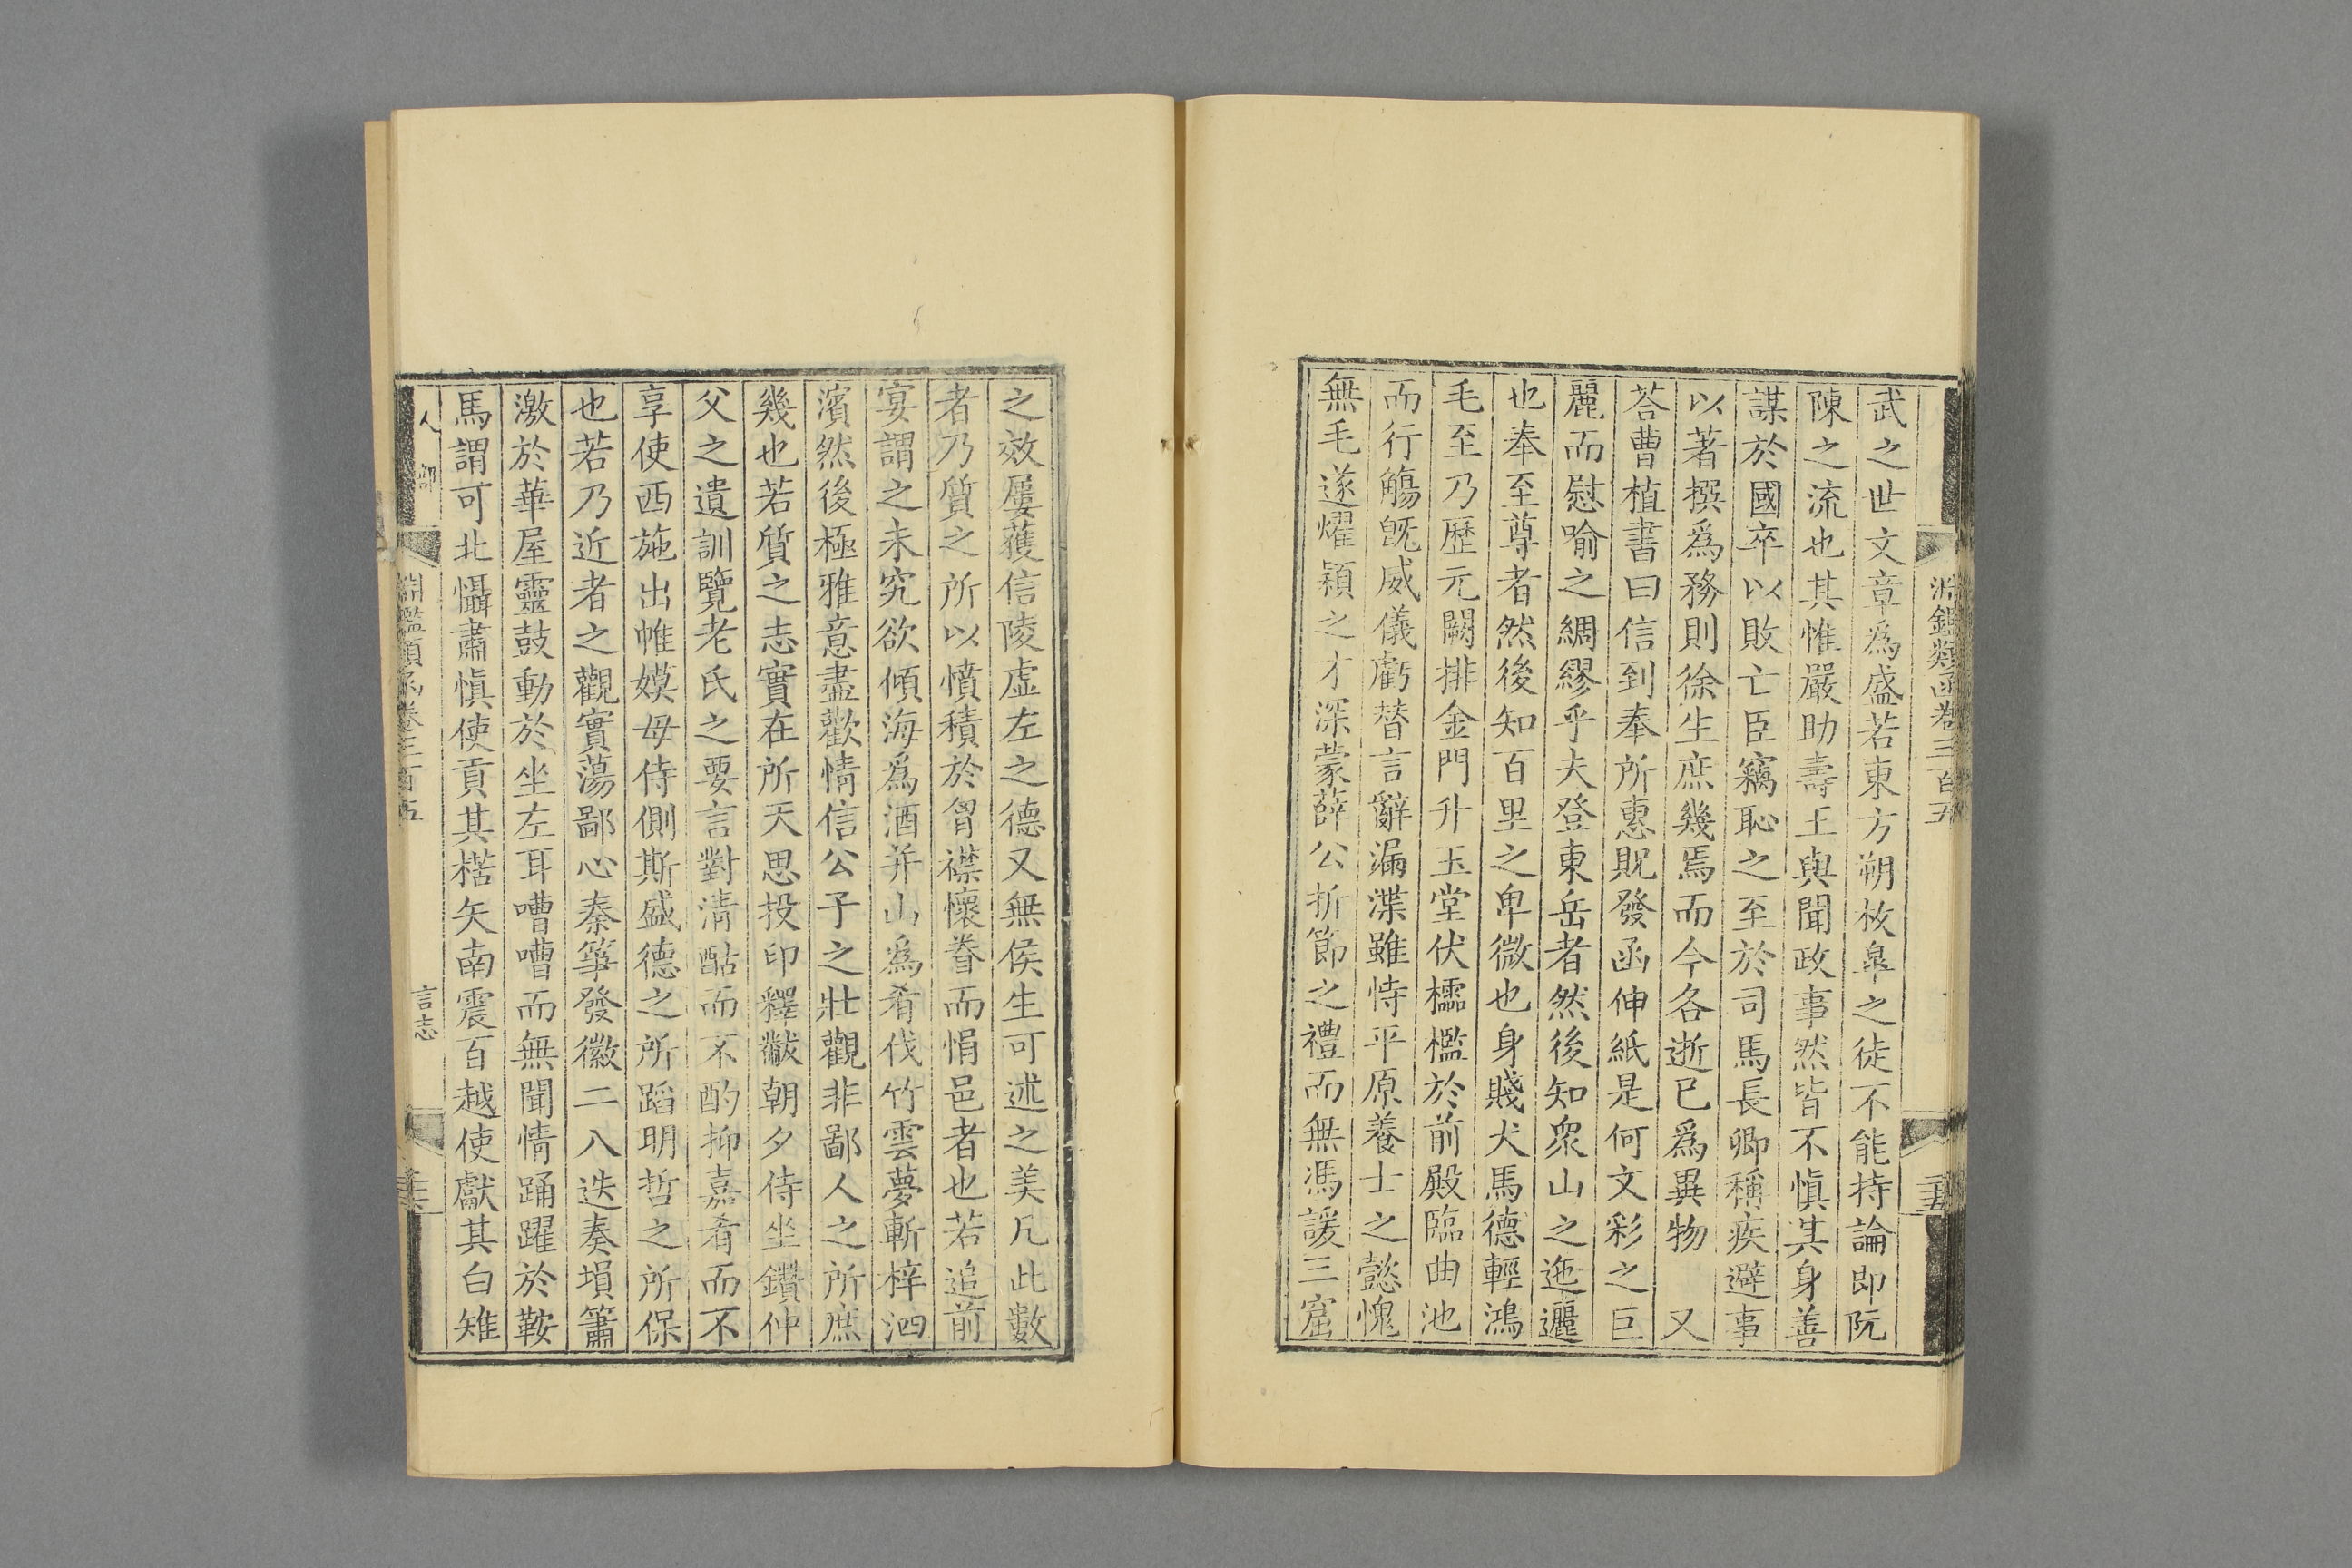 淵鑑類函卷三百五
武之世文章爲盛若東方朔枚臯之徒不能持論即阮
陳之流也其惟嚴助壽王與聞政事然皆不愼其身善
謀於國卒以敗亡臣竊恥之至於司馬長卿稱疾避事
以著撰爲務則徐生庶幾焉而今各逝已爲異物　又
荅曹植書曰信到奉所惠貺發函伸紙是何文彩之巨
麗而慰喻之綢繆乎夫登東岳者然後知衆山之迤邐
也奉至尊者然後知百里之卑微也身賤犬馬德輕鴻
毛至乃歷元闕排金門升玉堂伏櫺檻於前殿臨曲池
而行觴旣威儀虧替言辭漏渫雖恃平原養士之懿愧
無毛遂燿穎之才深蒙薛公折節之禮而無馮諼三窟
之效屢獲信陵虛左之德又無侯生可述之美凡此數
者乃質之所以憤積於胷襟懷眷而悁邑者也若追前
宴謂之未究欲傾海爲酒并山爲肴伐竹雲夢斬梓泗
濱然後極雅意盡歡情信公子之壯觀非鄙人之所庶
幾也若質之志實在所天思投印釋黻朝夕侍坐鑽仲
父之遺訓覽老氏之要言對清酤而不酌抑嘉肴而不
享使西施出帷嫫母侍側斯盛德之所蹈明哲之所保
也若乃近者之觀實蕩鄙心秦箏發徽二八迭奏塤簫
激於華屋靈鼓動於坐左耳嘈嘈而無聞情踊躍於鞍
馬謂可北懾肅愼使貢其楛矢南震百越使獻其白雉
人部
淵鑑類函卷三百五
言志